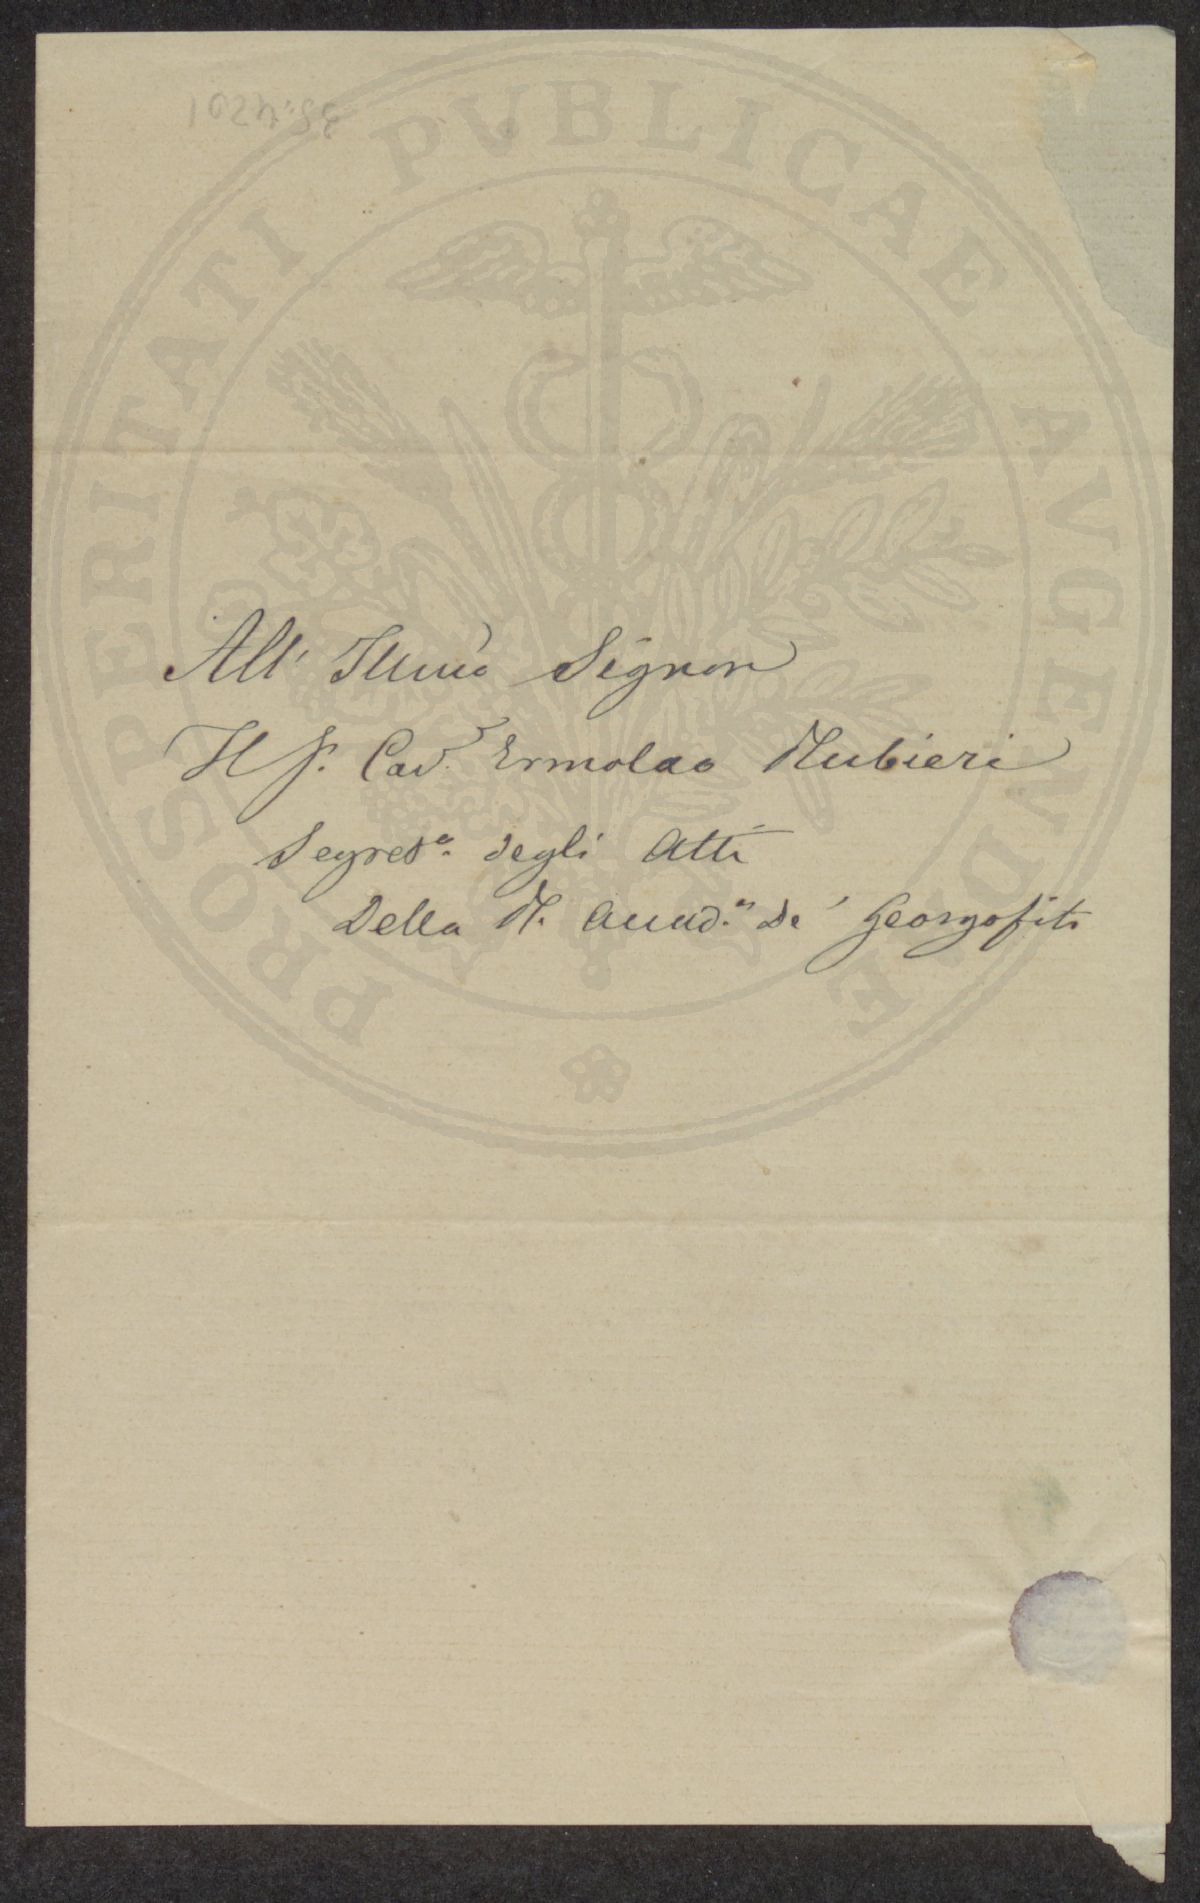 PROSPERITATI PVBLICAE AVGENDAE
All' Illmo Signor
Il S. Cav.r Ermolao Rubieri
Segret.o degli Atti
Della R. Accad.a de' Georgofili